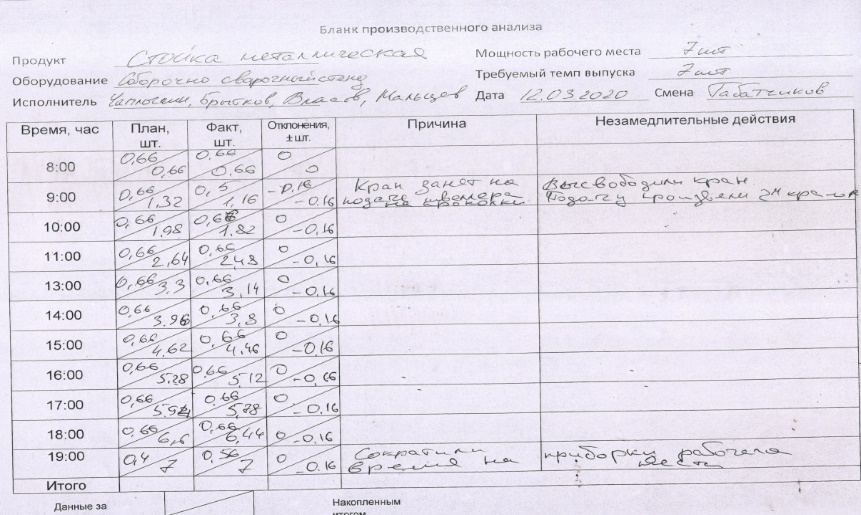 Бланк производственного анализа
Продукт Стойка металлическая Мощность рабочего места 7 шт
Оборудование Сборочно сварочный стенд Требуемый темп выпуска 7 шт
Исполнитель Брытков, Власов, Мальцев Дата 12.03.2020 Смена Табатчиков
Время, час План, шт. Факт, шт. Отклонения, ± шт. Причина Незамедлительные действия
8:00 0,66 0,66 0,66 0,66 0 0
9:00 0,66 1,32 0,5 1,16 -0,16 -0,16 Кран занят на подаче швеллера на проколки Высвободили кран Подачу произвели 2м краном
10:00 0,66 1,98 0,66 1,82 0 -0,16
11:00 0,66 2,64 0,66 2,48 0 -0,16
13:00 0,66 3,3 0,66 3,14 0 -0,16
14:00 0,66 3,96 0,66 3,8 0 -0,16
15:00 0,66 4,62 0,66 4,46 0 -0,16
16:00 0,66 5,28 0,66 5,12 0 -0,16
17:00 0,66 5,94 0,66 5,78 0 -0,16
18:00 0,66 6,6 0,66 6,44 0 -0,16
19:00 0,4 7 0,56 7 0 -0,16 Сократили время на приборки рабочего места
Итого
Данные за Накопленным
итогом